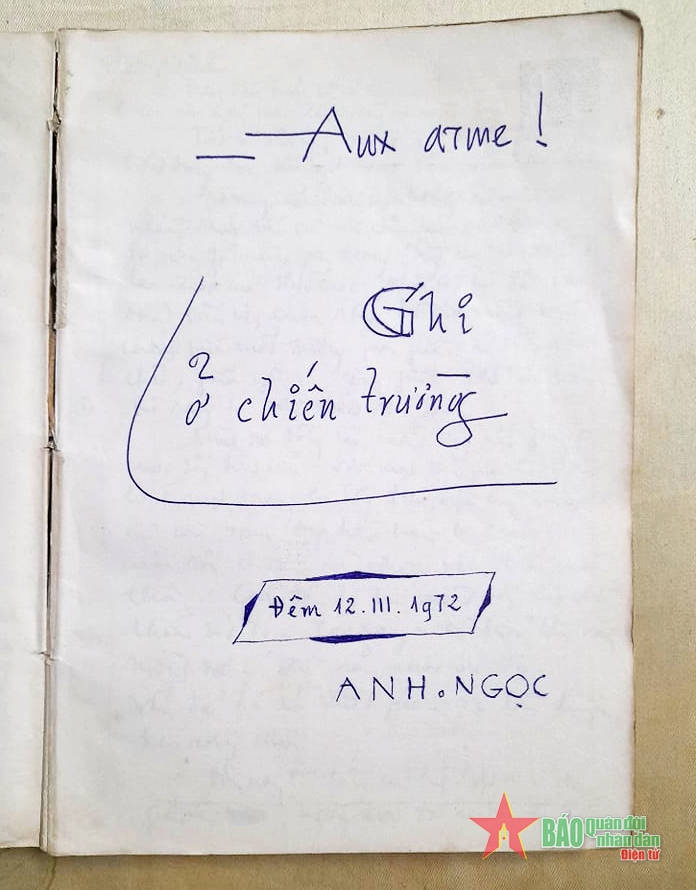 Aux arme !
Ghi
ở chiến trường
Đêm 12.III.1972
ANH.NGỌC
BÁO Quân đội
nhân dân
Điện tử